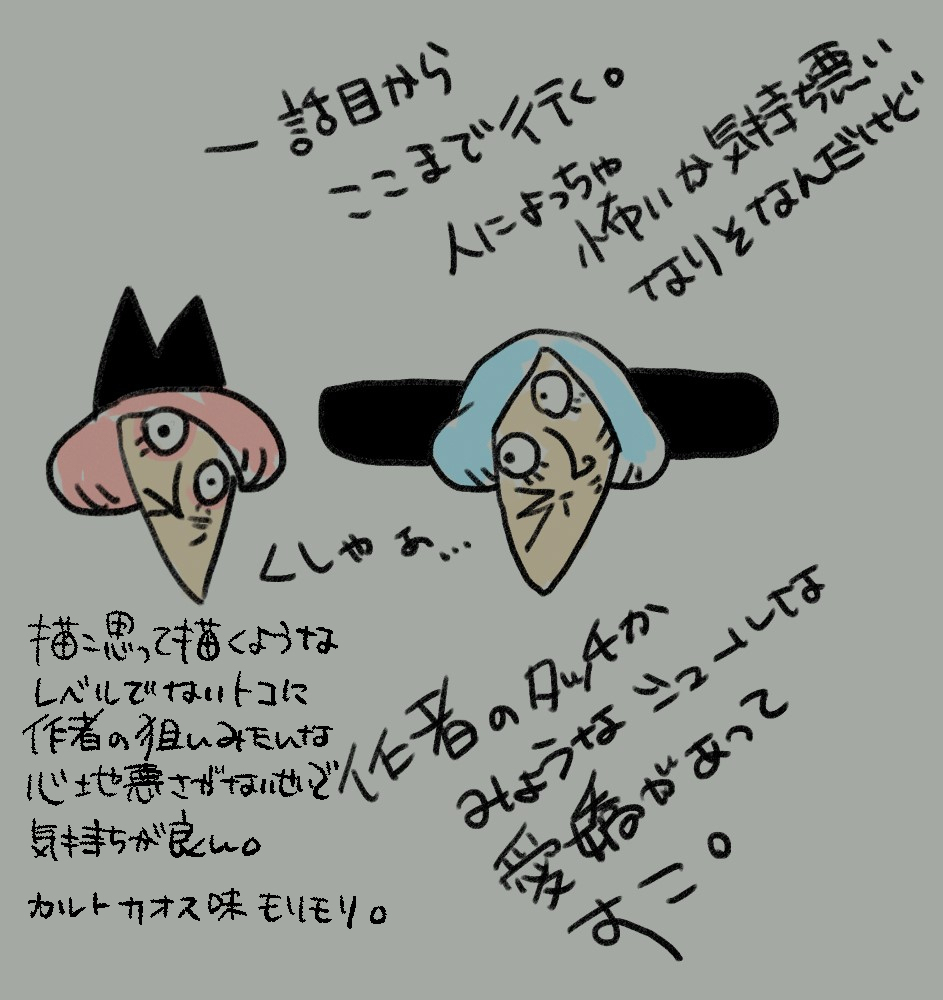 一話目から
ここまで行く。
人によっちゃ
怖いか気持ち悪い
なりそなんだけど
くしゃあ…
描こ思って描くような
レベルでないトコに
作者の狙いみたいな
心地悪さがないせいで
気持ちが良い。
カルトカオス味モリモリ。
作者のタッチか
みょうなシュールな
愛嬌があって
すこ。